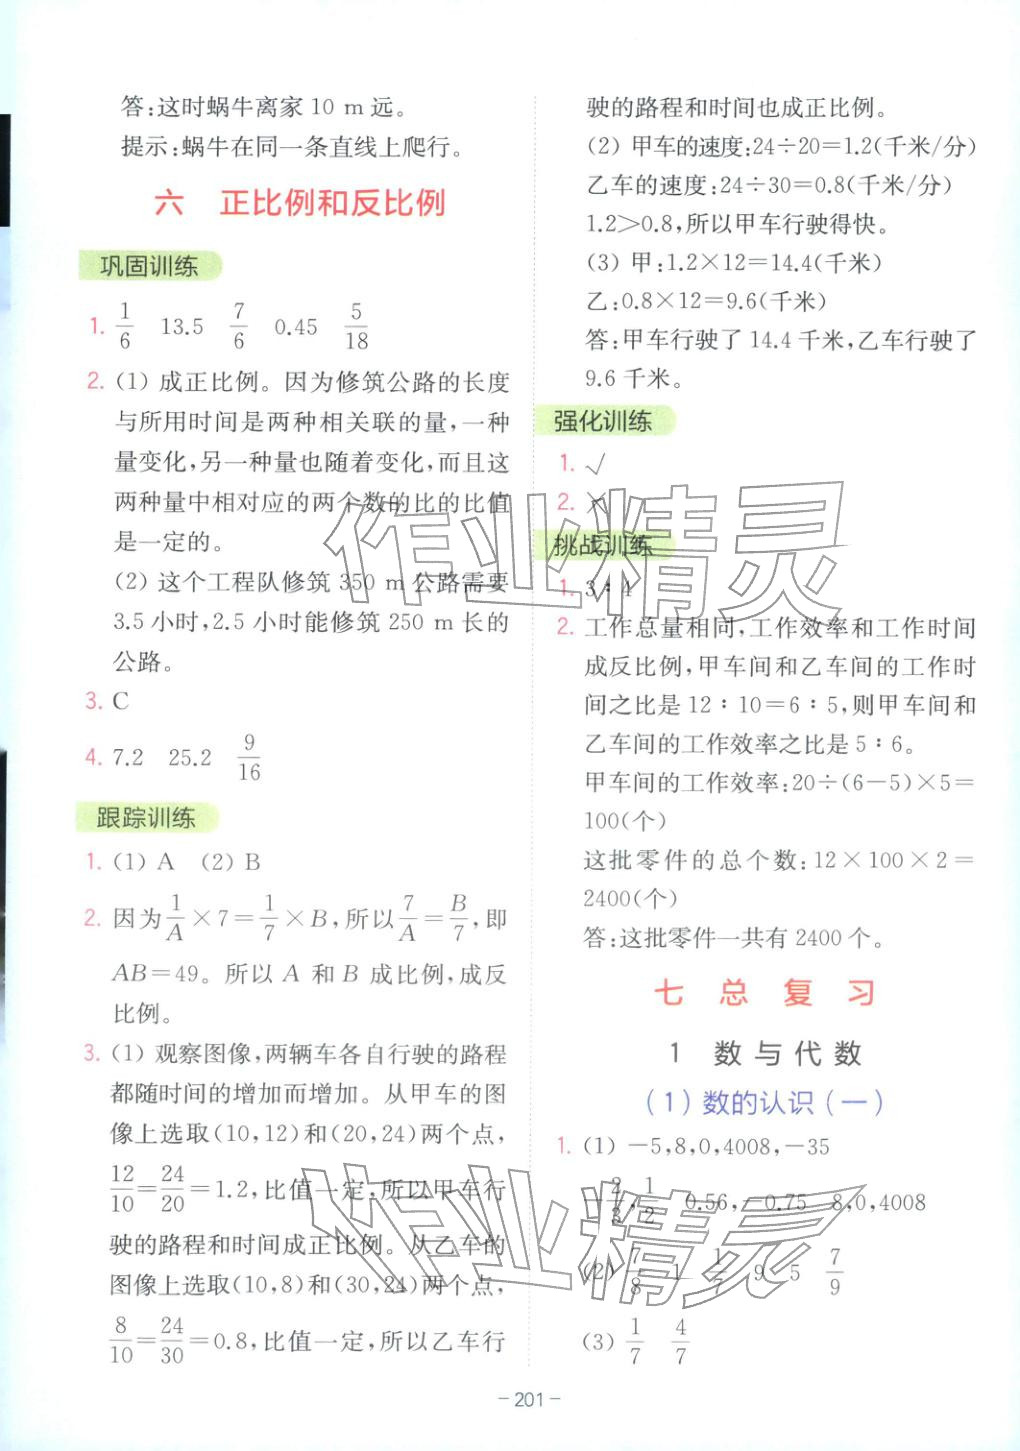 答:这时蜗牛离家 10 m 远。
提示:蜗牛在同一条直线上爬行。
六 正比例和反比例
巩固训练
1. 1/6 13.5 7/6 0.45 5/18
2. (1) 成正比例。因为修筑公路的长度
与所用时间是两种相关联的量,一种
量变化,另一种量也随着变化,而且这
两种量中相对应的两个数的比的比值
是一定的。
(2) 这个工程队修筑 350 m 公路需要
3.5 小时,2.5 小时能修筑 250 m 长的
公路。
3. C
4. 7.2 25.2 9/16
跟踪训练
1. (1) A (2) B
2. 因为 1/A ×7= 1/7 ×B,所以 7/A = B/7 ,即
AB=49。所以 A 和 B 成比例,成反
比例。
3. (1) 观察图像,两辆车各自行驶的路程
都随时间的增加而增加。从甲车的图
像上选取(10,12)和(20,24)两个点,
12/10 = 24/20 =1.2,比值一定,所以甲车行
驶的路程和时间成正比例。从乙车的
图像上选取(10,8)和(30,24)两个点,
8/10 = 24/30 =0.8,比值一定,所以乙车行
驶的路程和时间也成正比例。
(2) 甲车的速度:24÷20=1.2(千米/分)
乙车的速度:24÷30=0.8(千米/分)
1.2>0.8,所以甲车行驶得快。
(3) 甲:1.2×12=14.4(千米)
乙:0.8×12=9.6(千米)
答:甲车行驶了 14.4 千米,乙车行驶了
9.6 千米。
强化训练
1. √
2. ×
挑战训练
1. 3∶4
2. 工作总量相同,工作效率和工作时间
成反比例,甲车间和乙车间的工作时
间之比是 12∶10=6∶5,则甲车间和
乙车间的工作效率之比是 5∶6。
甲车间的工作效率:20÷(6-5)×5=
100(个)
这批零件的总个数:12×100×2=
2400(个)
答:这批零件一共有 2400 个。
七 总复习
1 数与代数
(1)数的认识(一)
1. (1) -5,8,0,4008,-35
-2/3, 1/2 0.56,-0.75 8,0,4008
(2) 7/8 1 1/7 9 5 7/9
(3) 1/7 4/7
- 201 -
作业精灵
作业精灵